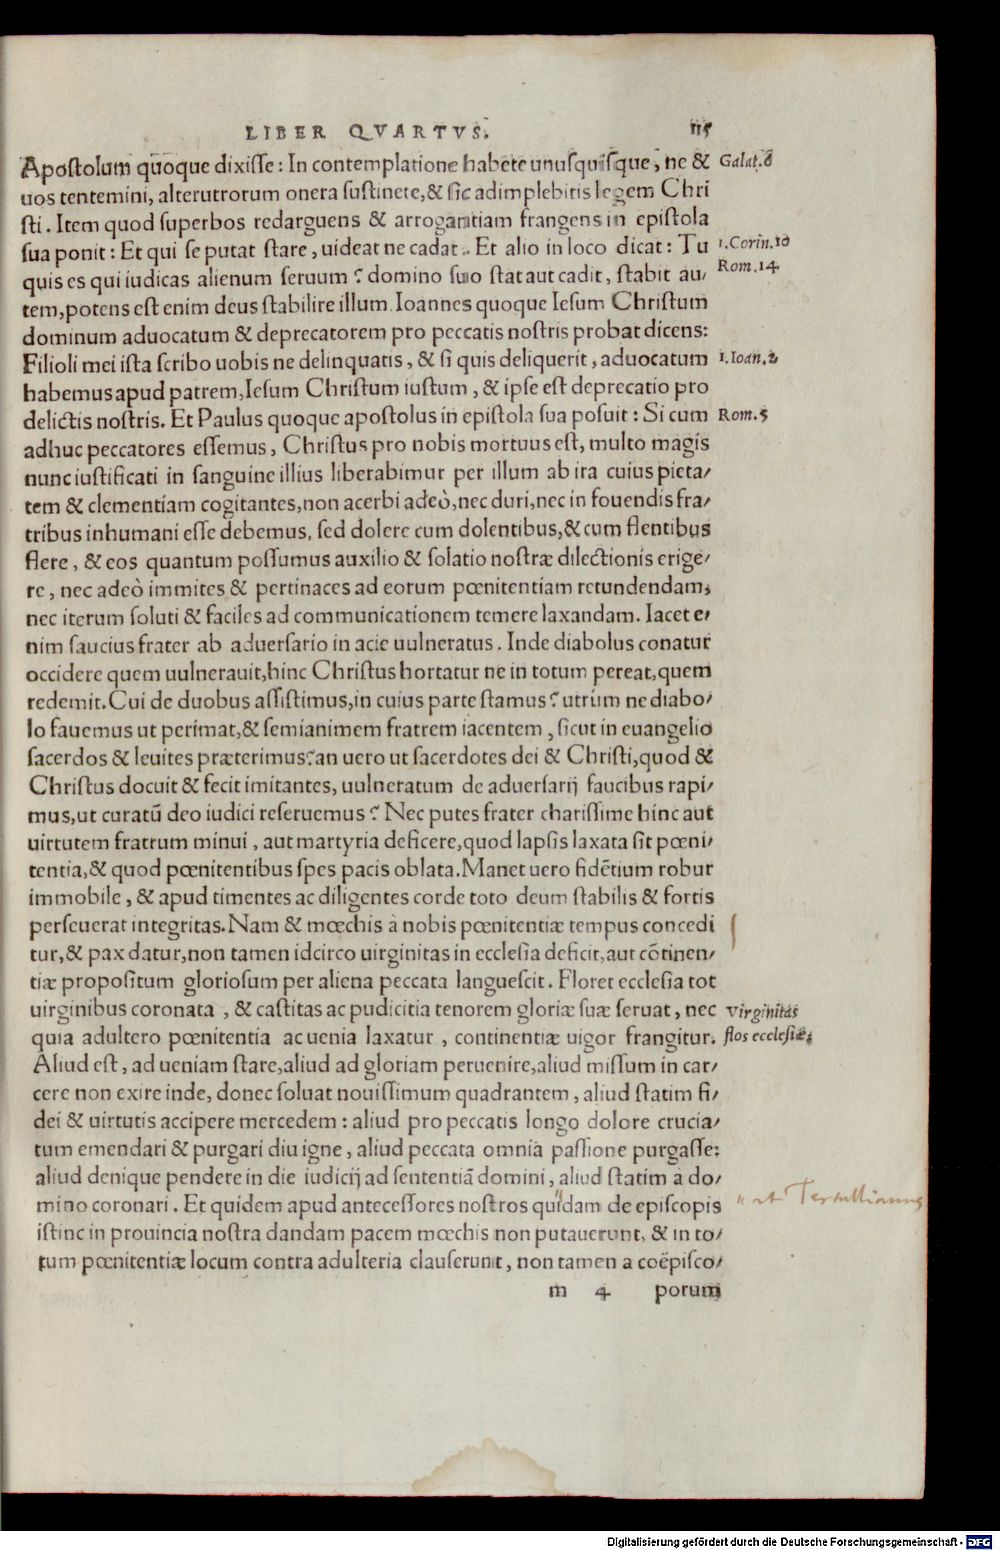 LIBER QVARTVS. 115
Apostolum quoque dixisse: In contemplatione habete unusquisque, ne & Galat.6
uos tentemini, alterutrorum onera sustinete, & sic adimplebitis legem Chri
sti. Item quod superbos redarguens & arrogantiam frangens in epistola
sua ponit: Et qui se putat stare, uideat ne cadat. Et alio in loco dicat: Tu 1.Corin.10
quis es qui iudicas alienum seruum? domino suo stat aut cadit, stabit au/ Rom.14
tem, potens est enim deus stabilire illum. Ioannes quoque Iesum Christum
dominum aduocatum & deprecatorem pro peccatis nostris probat dicens:
Filioli mei ista scribo uobis ne delinquatis, & si quis deliquerit, aduocatum 1.Ioan.2
habemus apud patrem, Iesum Christum iustum, & ipse est deprecatio pro
delictis nostris. Et Paulus quoque apostolus in epistola sua posuit: Si cum Rom.5
adhuc peccatores essemus, Christus pro nobis mortuus est, multo magis
nunc iustificati in sanguine illius liberabimur per illum ab ira cuius pieta/
tem & clementiam cogitantes, non acerbi adeò, nec duri, nec in fouendis fra/
tribus inhumani esse debemus, sed dolere cum dolentibus, & cum flentibus
flere, & eos quantum possumus auxilio & solatio nostræ dilectionis erige/
re, nec adeò immites & pertinaces ad eorum pœnitentiam retundendam,
nec iterum soluti & faciles ad communicationem temere laxandam. Iacet e/
nim saucius frater ab aduersario in acie uulneratus. Inde diabolus conatur
occidere quem uulnerauit, hinc Christus hortatur ne in totum pereat, quem
redemit. Cui de duobus assistimus, in cuius parte stamus? utrúm ne diabo/
lo fauemus ut perimat, & semianimem fratrem iacentem, sicut in euangelio
sacerdos & leuites præterimus? an uero ut sacerdotes dei & Christi, quod &
Christus docuit & fecit imitantes, uulneratum de aduersarij faucibus rapi/
mus, ut curatū deo iudici reseruemus? Nec putes frater charissime hinc aut
uirtutem fratrum minui, aut martyria deficere, quod lapsis laxata sit pœni/
tentia, & quod pœnitentibus spes pacis oblata. Manet uero fidētium robur
immobile, & apud timentes ac diligentes corde toto deum stabilis & fortis
perseuerat integritas. Nam & mœchis à nobis pœnitentiæ tempus concedi
tur, & pax datur, non tamen idcirco uirginitas in ecclesia deficit, aut cōtinen/
tiæ propositum gloriosum per aliena peccata languescit. Floret ecclesia tot
uirginibus coronata, & castitas ac pudicitia tenorem gloriæ suæ seruat, nec Virginitas
quia adultero pœnitentia ac uenia laxatur, continentiæ uigor frangitur. flos ecclesiæ.
Aliud est, ad ueniam stare, aliud ad gloriam peruenire, aliud missum in car/
cere non exire inde, donec soluat nouissimum quadrantem, aliud statim fi/
dei & uirtutis accipere mercedem: aliud pro peccatis longo dolore crucia/
tum emendari & purgari diu igne, aliud peccata omnia passione purgasse:
aliud denique pendere in die iudicij ad sententiā domini, aliud statim à do/
mino coronari. Et quidem apud antecessores nostros quidam de episcopis " ut Tertullianus
istinc in prouincia nostra dandam pacem mœchis non putauerunt, & in to/
tum pœnitentiæ locum contra adulteria clauserunt, non tamen a coëpisco/
m 4 porum
Digitalisierung gefördert durch die Deutsche Forschungsgemeinschaft - DFG